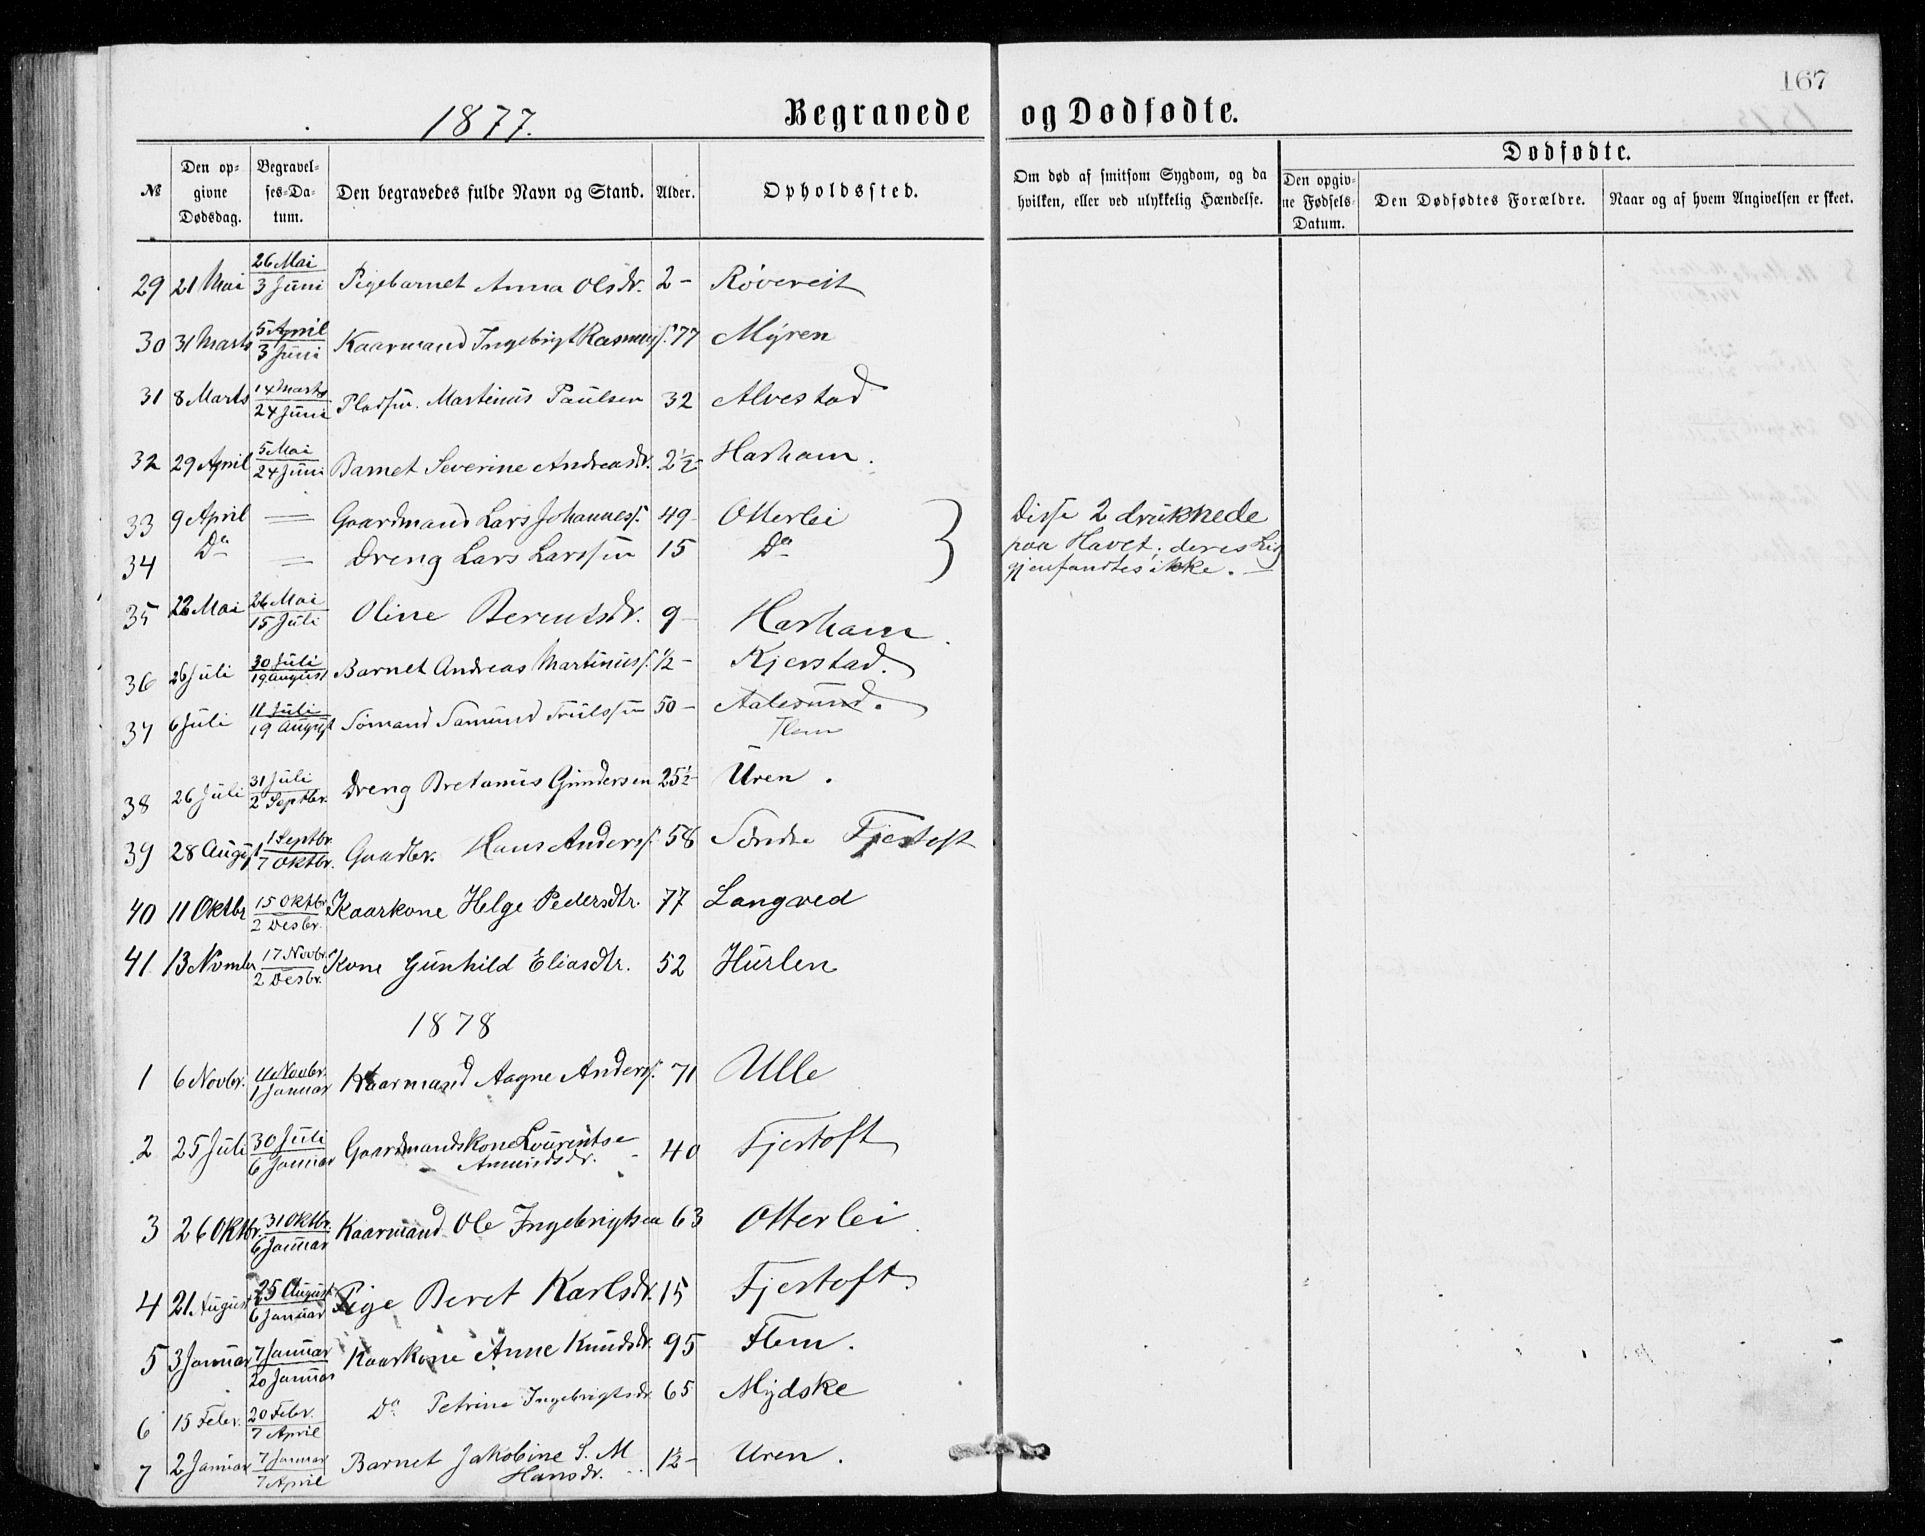 167
1877.
Begravede og Dødfødte.
№
Den opgivne Dødsdag.
Begravelses-Datum.
Den begravedes fulde Navn og Stand.
Alder.
Opholdssted.
Om død af smitsom Sygdom, og da hvilken, eller ved ulykkelig Hændelse.
Dødfødte.
Den opgivne Fødsels-Datum.
Den Dødfødtes Forældre.
Naar og af hvem Angivelsen er skeet.
29 21 Mai 26 Mai / 3 Juni Pigebarnet Anna Olsdr. 2 - Rövereit
30 31 Marts 5 April / 3 Juni Kaarmand Ingebrigt Rasmusf. 77 Myren
31 8 Marts 14 Marts / 24 Juni Pladsm. Martinus Paulsen 32 Alvestad
32 29 April 5 Mai / 24 Juni Barnet Severine Andreasdr. 2½ - Harham.
33 9 April = Gaardmand Lars Johannesf. 49 - Otterlei
34 Do = Dreng Lars Larssen 15 Do
Disse 2 druknede
paa Havet; deres Lig
gjenfandtes ikke. -
35 22 Mai 26 Mai / 15 Juli Oline Berentsdr. 9 - Harham.
36 26 Juli 30 Juli / 19 August Barnet Andreas Martinusf. ½ - Kjerstad.
37 6 Juli 11 Juli / 19 August Sömand Samund Trulssen 50 - Aalesund.
Flem
38 26 Juli 31 Juli / 2 Septbr. Dreng Bretanus Gundersen 25½ - Uren.
39 28 August 1 Septbr. / 7 Oktbr. Gaardbr. Hans Andersf. 58 Söndre Fjertoft
40 11 Oktbr 15 Oktbr. / 2 Desbr. Kaarkone Helge Pedersdtr. 77 Langved
41. 13 Novmbr 17 Novbr. / 2 Desbr. Kone Gunhild Eliasdtr. 52 Hurlen
1878
1 6 Novbr. 11 Novbr. / 1 Januar Kaarmand Aagne Andersf. 71 Ulle
2 25 Juli 30 Juli / 6 Januar Gaardmandskone Lourentse
Amundsdr. - 40 Fjertoft
3 26 Oktbr. 31 Oktbr. / 6 Januar Kaarmand Ole Ingebrigtsen 63 Otterlei
4 21. August 25 August / 6 Januar Pige Beret Karlsdr. 15 Fjertoft.
5 3 Januar 7 Januar / 20 Januar Kaarkone Anne Knudsdr. 95 Flem.
6 15 Febr. 20 Febr. / 7 April Do Petrine Ingebrigtsdr. 65 Mydske
7 2 Januar 7 Januar / 7 April Barnet Jakobine S. M
Hansdr. 1½ - Uren.